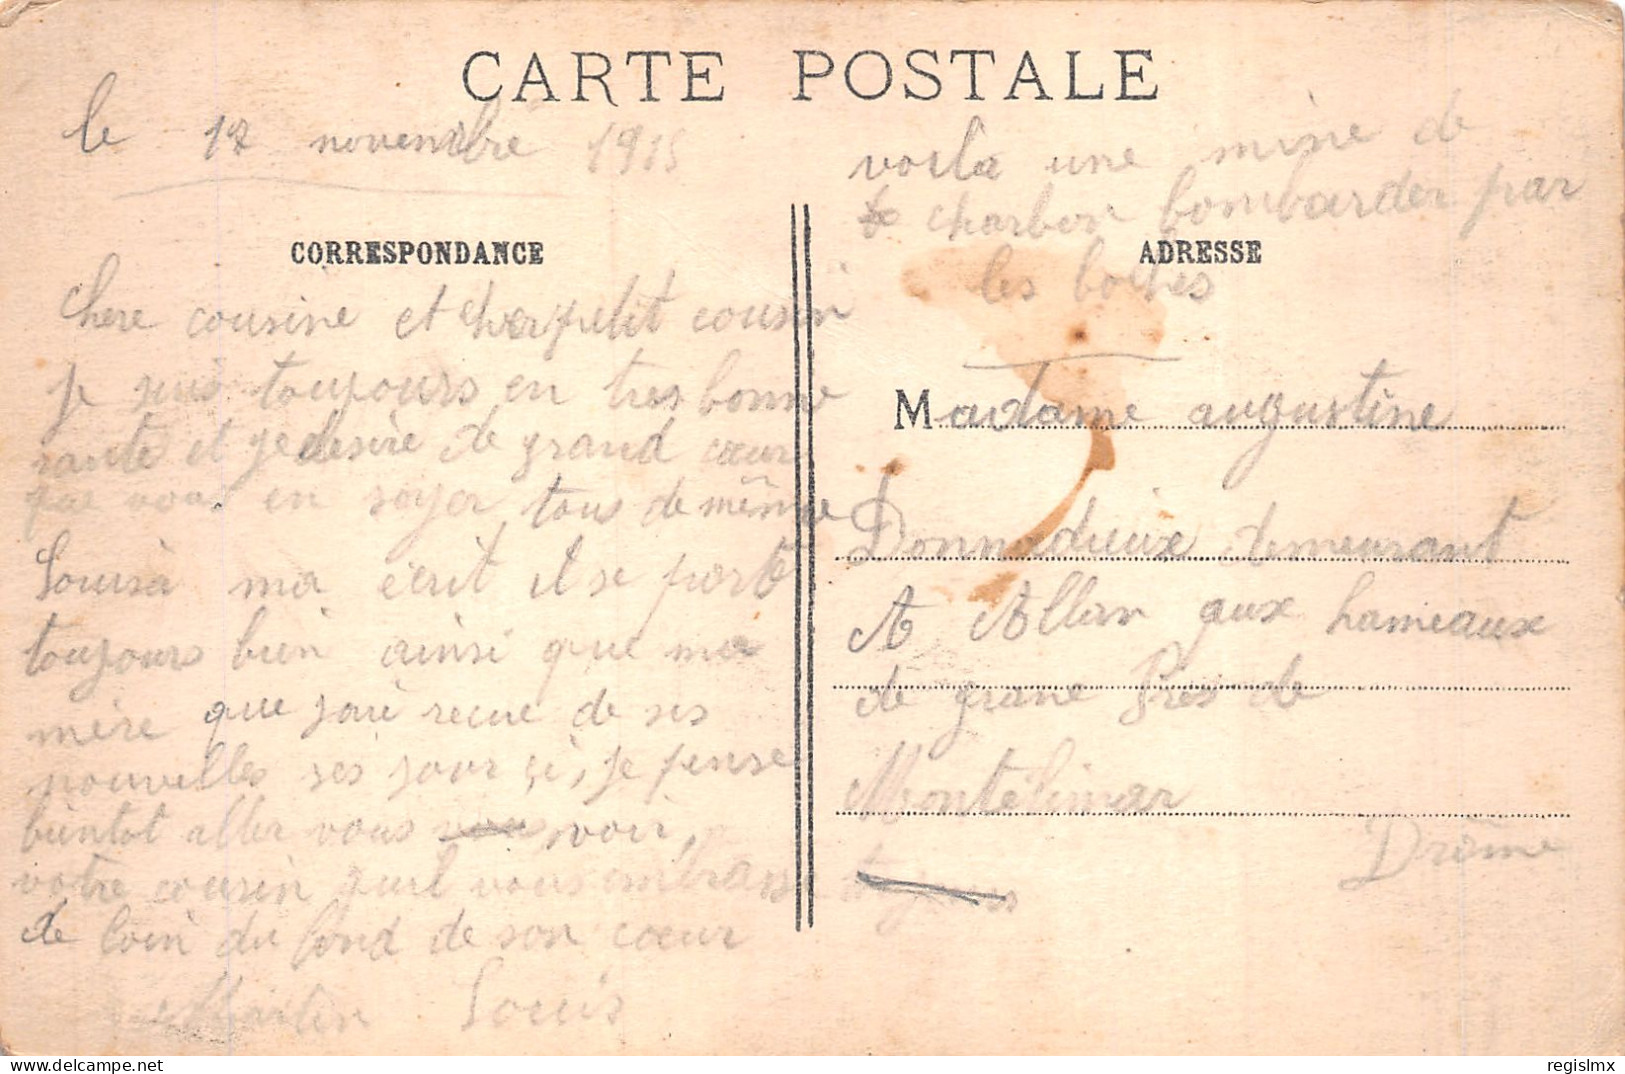 CARTE POSTALE
le 17 novembre 1915
CORRESPONDANCE
chere cousine et cher petit cousin
je suis toujours en tres bonne
santé et je desire de grand cœur
que vous en soyer tous de même
Louis à ma écrit il se porte
toujours bien ainsi que ma
mère que jai recue de ses
nouvelles ses jour çi, je pense
bientot aller vous vous voir,
votre cousin quil vous embrasse
de loin du fond de son cœur
Martin Louis
voila une mine de
charbon bombarder par
les boches
ADRESSE
Madame augustine
Donnadieux demeurant
A Allan aux hameaux
de grane Pres de
Montélimar
Drôme
regislmx